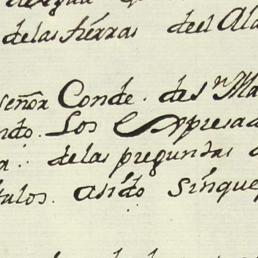 delas tierras deel Ala
señor Conde. de Sn Ma
ndo. Los Expresad
a. delas preguntas
tulos. asido sinque